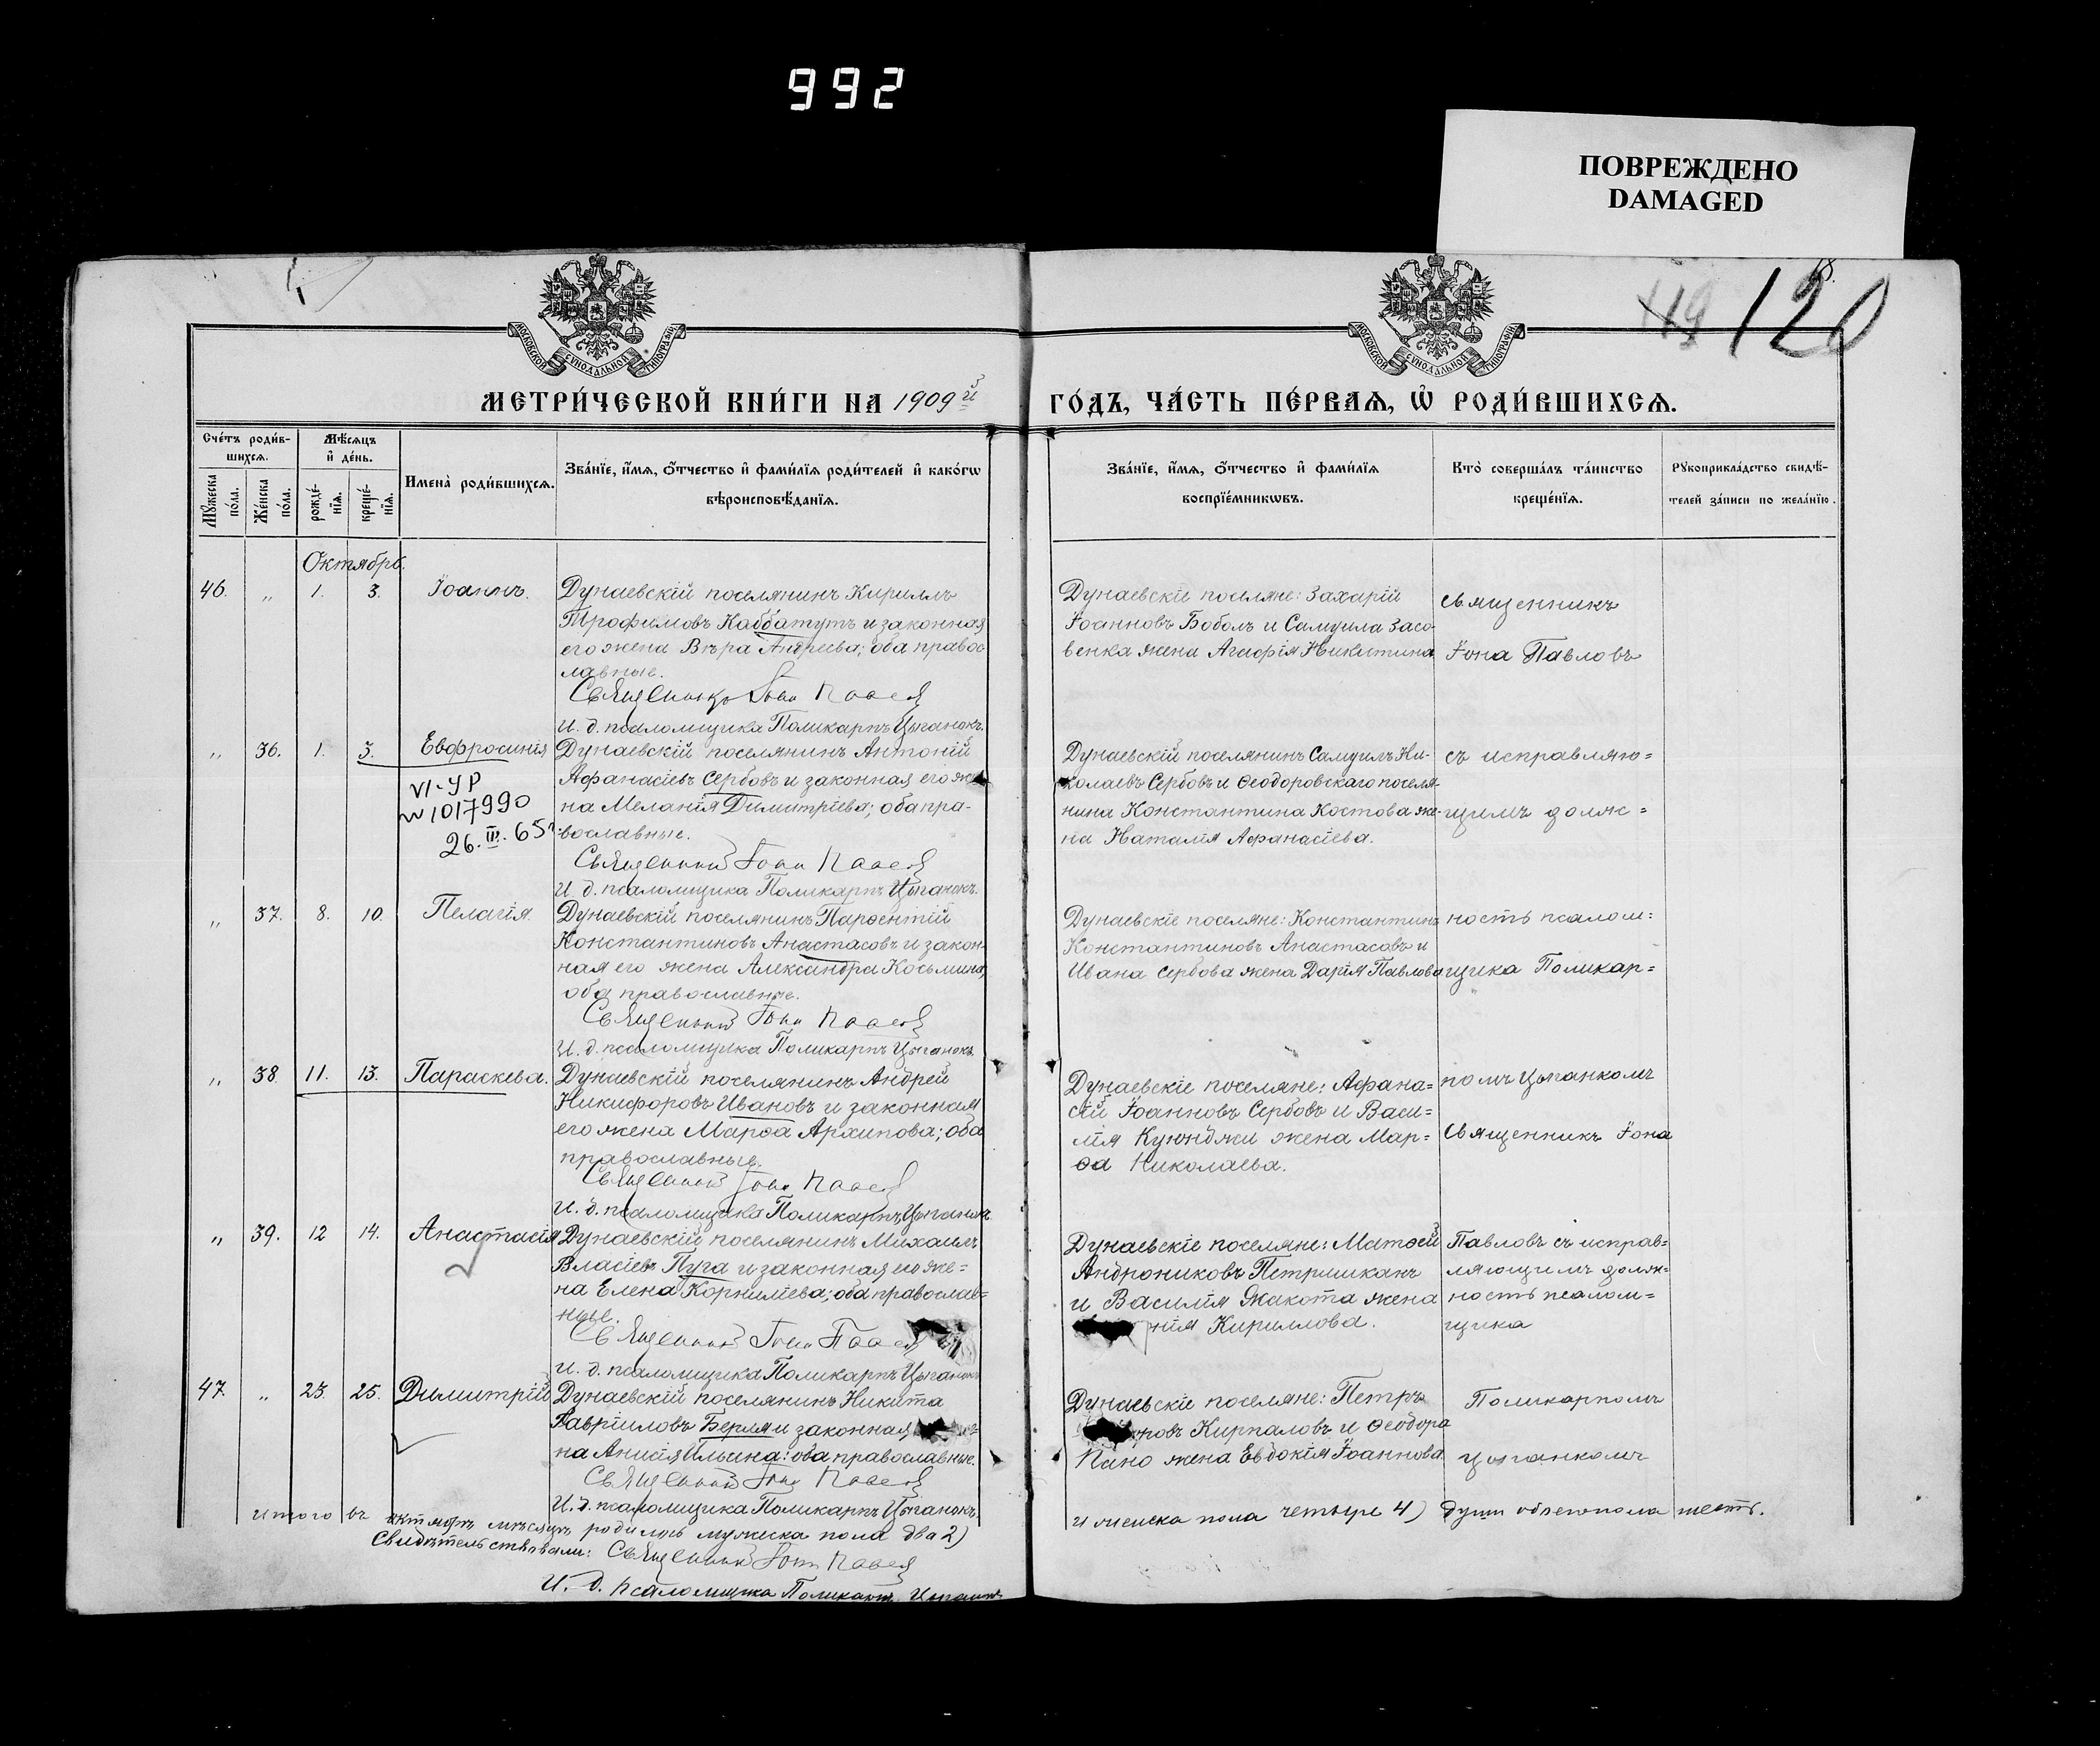 992
ПОВРЕЖДЕНО
DAMAGED
119 120
МОСКОВСКОЙ СУНОДАЛЬНОЙ ТИПОГРАФІИ
МОСКОВСКОЙ СУНОДАЛЬНОЙ ТИПОГРАФІИ
МЕТРИ́ЧЕСКОЙ КНИ́ГИ НА 1909й ГО́ДЪ, ЧА́СТЬ ПЕ́РВАѦ, Ѽ РОДИ́ВШИХСѦ.
Сче́тъ роди́вшихсѧ.
Мꙋжеска по́ла.
Же́нска по́ла.
Мѣ́сѧцъ и҆ де́нь.
рожде́нїѧ.
креще́нїѧ.
Имена̀ роди́вшихсѧ.
Зва́нїе, и҆́мѧ, ѻ҆́тчество и҆ фами́лїѧ роди́телей и҆ како́гѡ
вѣроисповѣ́данїѧ.
Зва́нїе, и҆́мѧ, ѻ҆́тчество и҆ фами́лїѧ
воспрїе́мникѡвъ.
Кто̀ соверша́лъ та́инство
креще́нїѧ.
Рꙋкоприкла́дство свидѣ́телей за́писи по жела́нїю.
Октябрь.
46. „ 1. 3. Іоаннъ.
Дунаевскій поселянинъ Кириллъ
Трофимовъ Каббатутъ и законная
его жена Вѣра Андреева; оба правос
лавные.
Священникъ Іона Павлов
И. д. псаломщика Поликарпъ Цыганокъ.
Дунаевскіе поселяне: Захарій
Іоанновъ Боболъ и Самуила Засо
венка жена Агафія Никитина
„ 36. 1. 3. Евфросинія
VI-УР
№1017990
26.III.65г
Дунаевскій поселянинъ Антоній
Афанасіевъ Сербовъ и законная его же
на Меланія Димитріева; оба пра-
вославные.
Священник Іона Павлов
И. д. псаломщика Поликарпъ Цыганокъ.
Дунаевскій поселянинъ Самуилъ Ни-
колаевъ Сербовъ и Ѳеодоровскаго поселя-
нина Константина Костова же-
на Наталія Афанасіева.
„ 37. 8. 10. Пелагія.
Дунаевскій поселянинъ Парѳентій
Константиновъ Анастасовъ и закон-
ная его жена Александра Косьмина,
оба православные.
Священник Іона Павлов
И. д. псаломщика Поликарпъ Цыганокъ.
Дунаевскіе поселяне: Константинъ
Константиновъ Анастасовъ и
Ивана Сербова жена Дарія Павлова
„ 38 11. 13. Параскева.
Дунаевскій поселянинъ Андрей
Никифоровъ Ивановъ и законная
его жена Марѳа Архипова; оба
православные.
Священник Іона Павлов
И. д. псаломщика Поликарпъ Цыганокъ
Дунаевскіе поселяне: Афана=
сій Іоанновъ Сербовъ и Васи=
лія Куюнджи жена Мар=
ѳа Николаева.
„ 39. 12 14. Анастасія
Дунаевскій поселянинъ Михаилъ
Власіевъ Пуга и законная его же=
на Елена Корниліева; оба православ=
ные.
Священник Іона Павлов
И. д. псаломщика Поликарпъ Цыганокъ
Дунаевскіе поселяне: Матѳей
Андрониковъ Петрличканъ
и Василія Жакота жена
нія Кириллова.
47. „ 23. 25. Димитрій
Дунаевскій поселянинъ Никита
Гавріиловъ Берля и законная
на Анисія Ильина: оба православные.
Священник Іона Павлов
И. д. псаломщика Поликарпъ Цыганокъ.
Дунаевскіе поселяне: Петръ
ровъ Кирпаловъ и Ѳеодора
Пано жена Евдокія Іоаннова
священникъ
Іона Павловъ
съ исправляю=
щимъ долж=
ность псалом=
щика Поликар=
помъ Цыганкомъ
Священникъ Іона
Павловъ съ исправ=
ляющимъ долж=
ность псалом=
щика
Поликарпомъ
Цыганкомъ
Итого въ октябрѣ мѣсяцѣ родилось мужеска пола два 2) и женска пола четыре 4) душъ обоего пола шесть.
Свидѣтельствовали: Священник Іона Павлов
И. д. псаломщика Поликарпъ Цыганокъ